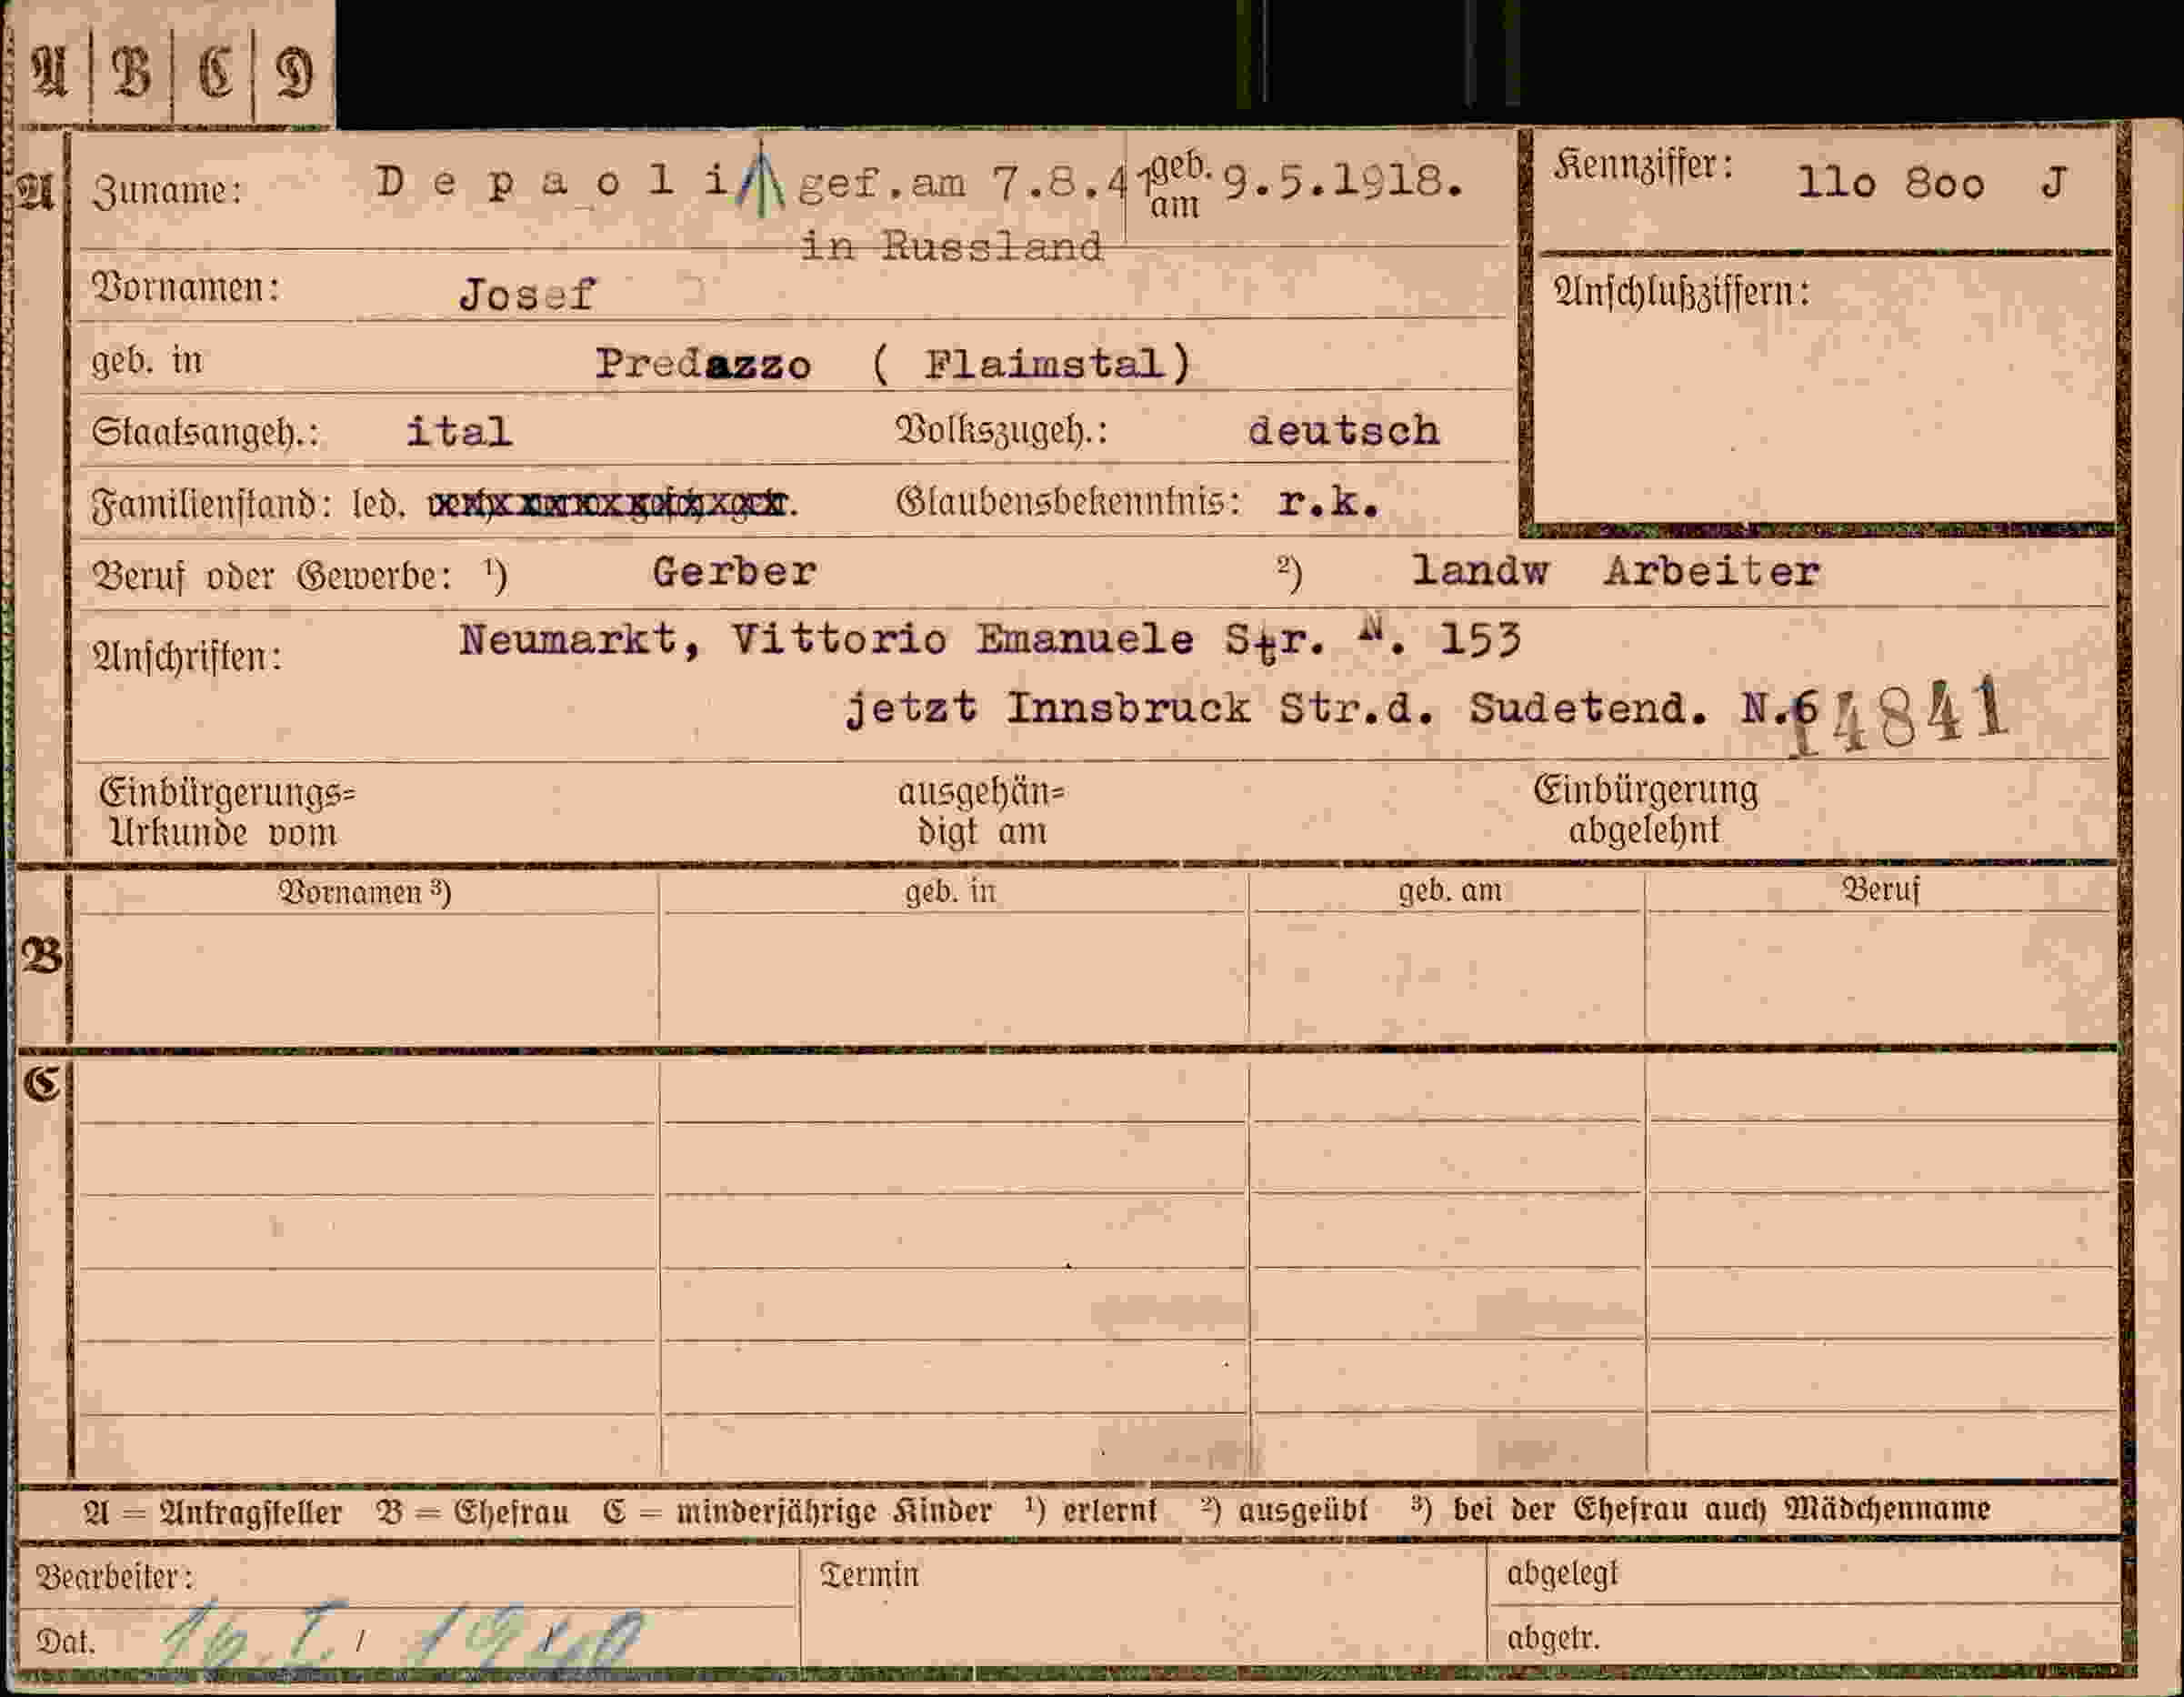 A B C D
A Zuname: Depaoli gef.am 7.8.41 geb. am 9.5.1918. Kennziffer: 11o 8oo J
in Russland
Vornamen: Josef Anschlußziffern:
geb. in Predazzo ( Flaimstal)
Staatsangeh.: ital Volkszugeh.: deutsch
Familienstand: led. Glaubensbekenntnis: r.k.
Beruf oder Gewerbe: ¹) Gerber ²) landw Arbeiter
Anschriften: Neumarkt, Vittorio Emanuele Str. N. 153
jetzt Innsbruck Str.d. Sudetend. N.6 14841
Einbürgerungs= ausgehän= Einbürgerung
Urkunde vom digt am abgelehnt
Vornamen ³) geb. in geb. am Beruf
B
C
A = Antragsteller B = Ehefrau C = minderjährige Kinder ¹) erlernt ²) ausgeübt ³) bei der Ehefrau auch Mädchenname
Bearbeiter: Termin abgelegt
Dat. 16. I. 1940 abgetr.